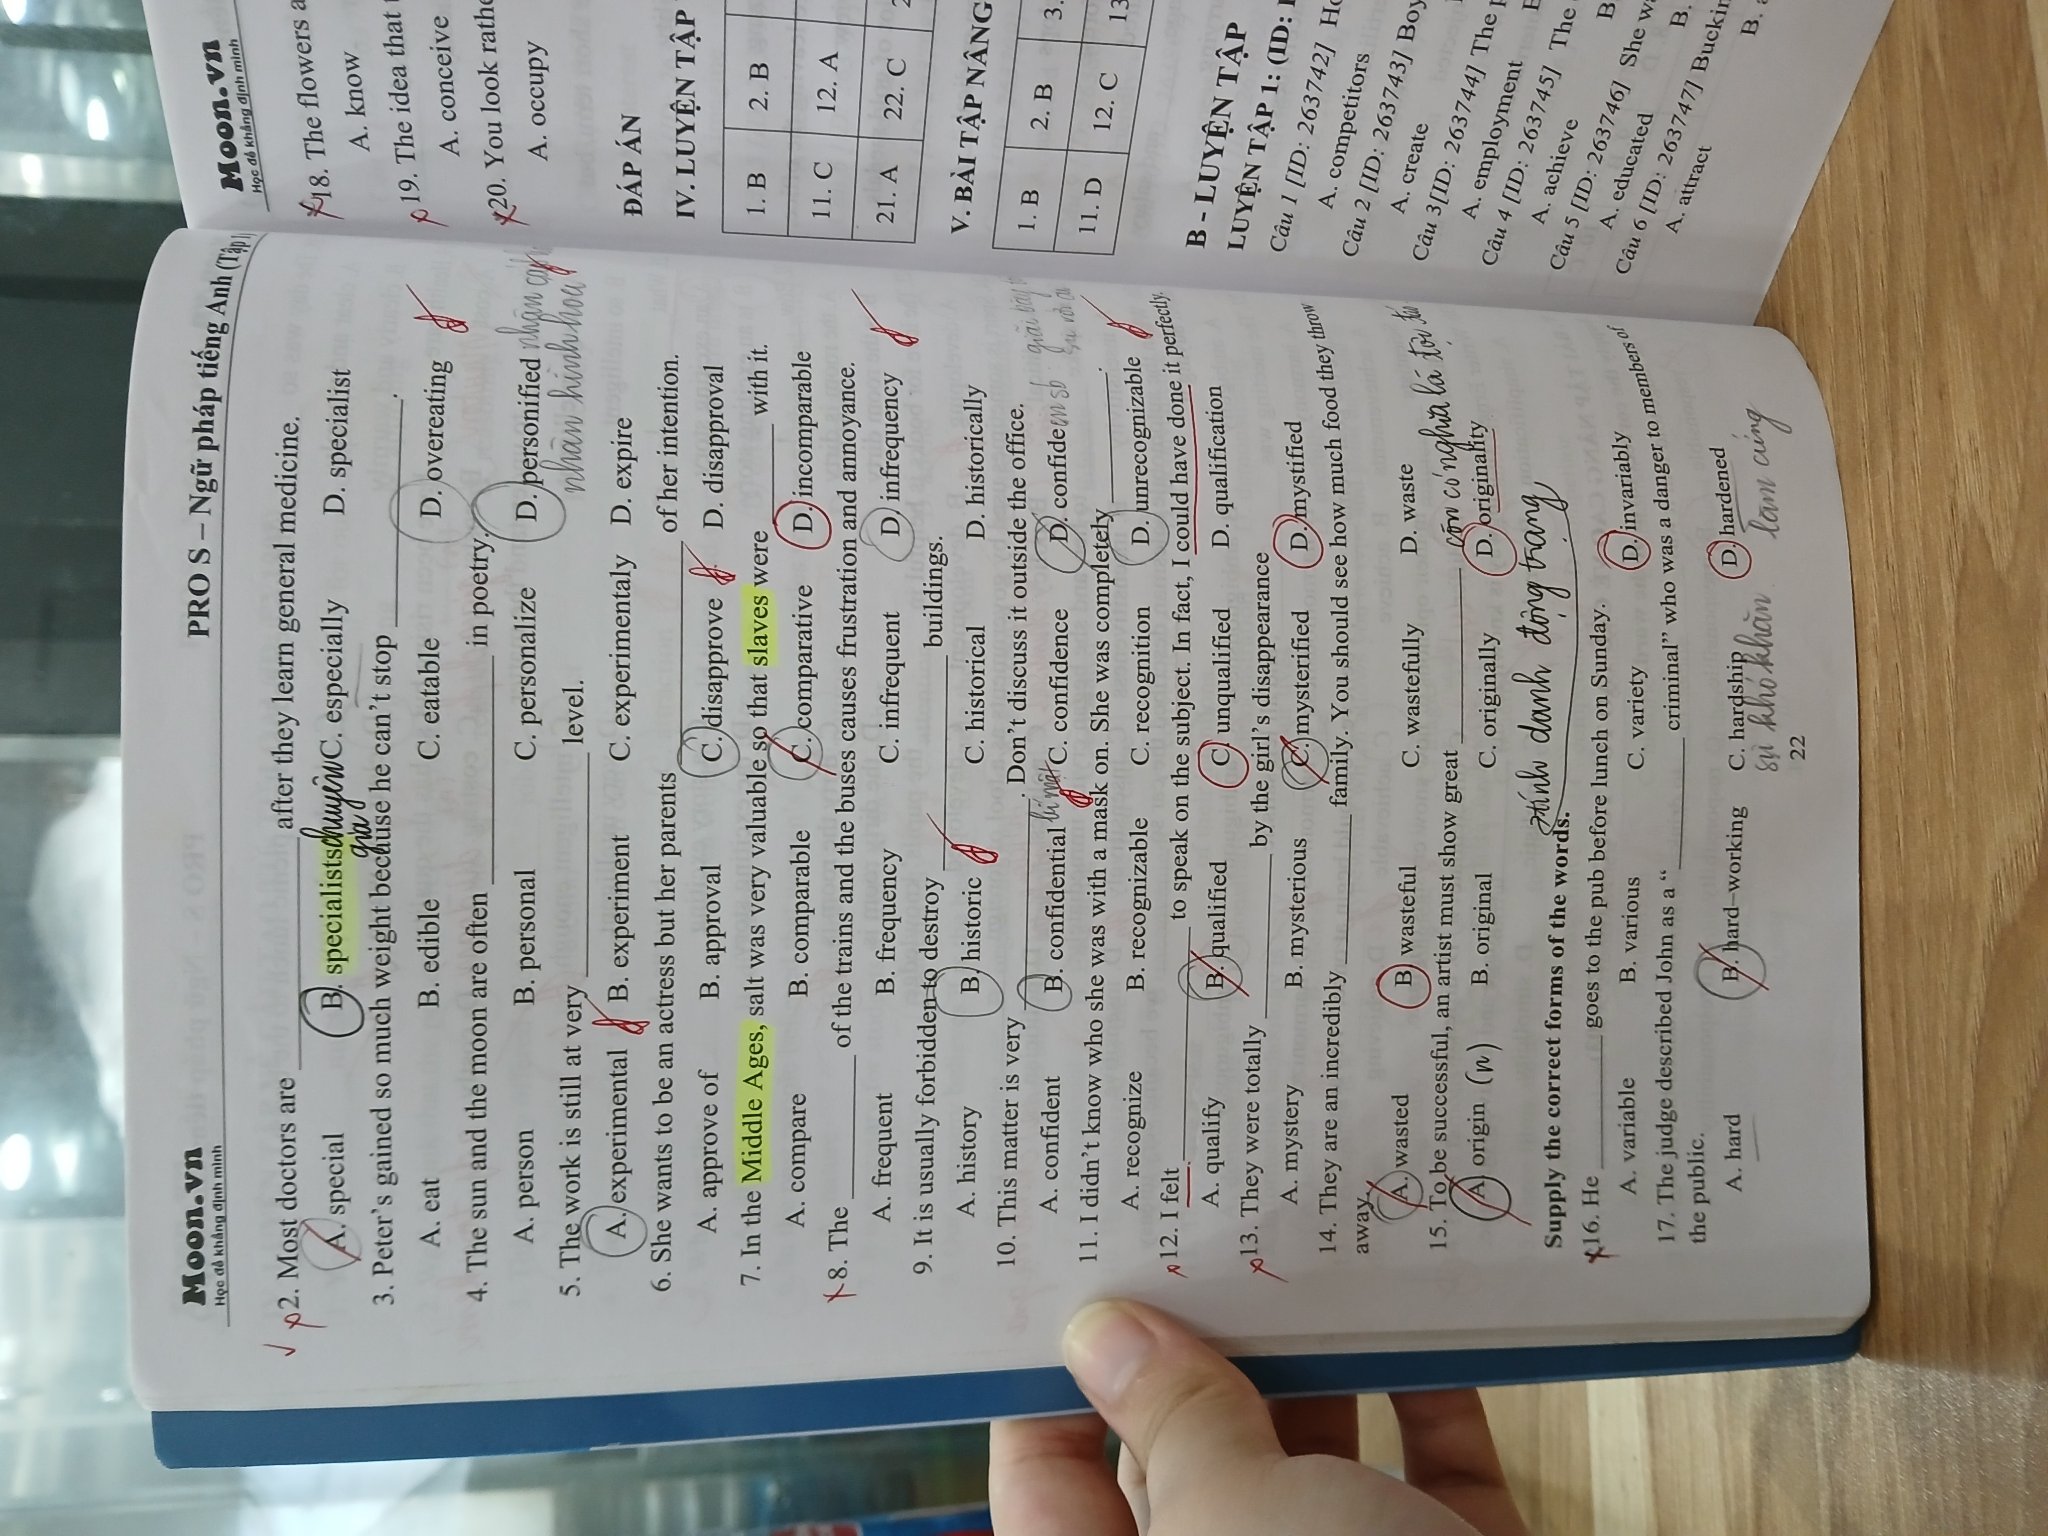 Moon.vn
Học để khẳng định mình
PRO S – Ngữ pháp tiếng Anh (Tập 1)
2. Most doctors are ________ after they learn general medicine.
A. special B. specialists chuyên gia C. especially D. specialist
3. Peter's gained so much weight because he can't stop ________.
A. eat B. edible C. eatable D. overeating
4. The sun and the moon are often ________ in poetry.
A. person B. personal C. personalize D. personified nhân cách
nhân hình hoá
5. The work is still at very ________ level.
A. experimental B. experiment C. experimentaly D. expire
6. She wants to be an actress but her parents ________ of her intention.
A. approve of B. approval C. disapprove D. disapproval
7. In the Middle Ages, salt was very valuable so that slaves were ________ with it.
A. compare B. comparable C. comparative D. incomparable
8. The ________ of the trains and the buses causes frustration and annoyance.
A. frequent B. frequency C. infrequent D. infrequency
9. It is usually forbidden to destroy ________ buildings.
A. history B. historic C. historical D. historically
10. This matter is very ________. Don't discuss it outside the office.
A. confident B. confidential bí mật C. confidence D. confide in sb: giãi bày
11. I didn't know who she was with a mask on. She was completely ________.
A. recognize B. recognizable C. recognition D. unrecognizable
12. I felt ________ to speak on the subject. In fact, I could have done it perfectly.
A. qualify B. qualified C. unqualified D. qualification
13. They were totally ________ by the girl's disappearance
A. mystery B. mysterious C. mysterified D. mystified
14. They are an incredibly ________ family. You should see how much food they throw
away.
A. wasted B. wasteful C. wastefully D. waste
15. To be successful, an artist must show great ________ còn có nghĩa là
A. origin (n) B. original C. originally D. originality
tính danh động trang
Supply the correct forms of the words.
16. He ________ goes to the pub before lunch on Sunday.
A. variable B. various C. variety D. invariably
17. The judge described John as a “ ________ criminal” who was a danger to members of
the public.
A. hard B. hard–working C. hardship D. hardened
sự khó khăn làm cứng
22
Moon.vn
Học để khẳng định mình
18. The flowers
A. know
19. The idea that
A. conceive
20. You look
A. occupy
ĐÁP ÁN
IV. LUYỆN TẬP
1. B 2. B
11. C 12. A
21. A 22. C
V. BÀI TẬP NÂNG
1. B 2. B 3.
11. D 12. C 13
B - LUYỆN TẬP
LUYỆN TẬP 1: (ID:
Câu 1 [ID: 263742]
A. competitors
Câu 2 [ID: 263743] Boy
A. create
Câu 3 [ID: 263744] The
A. employment
Câu 4 [ID: 263745] The
A. achieve B.
Câu 5 [ID: 263746] She
A. educated B.
Câu 6 [ID: 263747]
A. attract B.